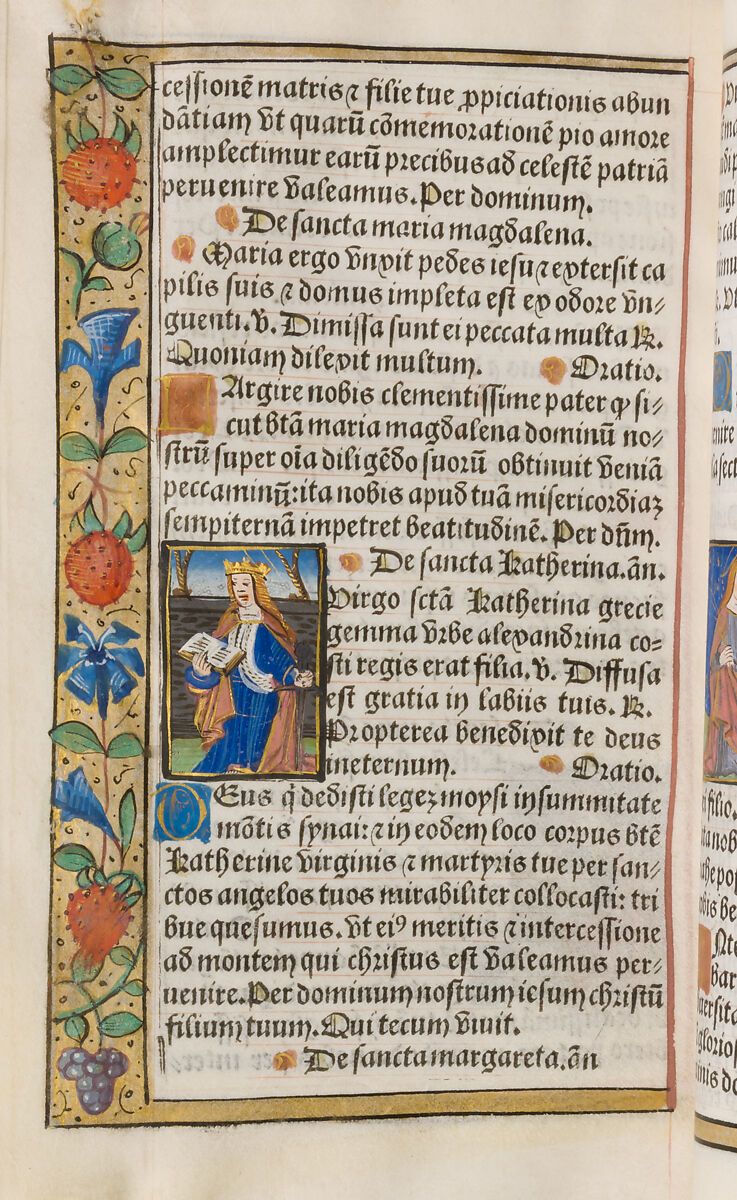 cessionē matris ⁊ filie tue ꝓpiciationis abun
dātiam vt quarū cōmemorationē pio amore
amplectimur earū precibus ad celestē patriā
peruenire valeamus. Per dominum.
De sancta maria magdalena.
Maria ergo vnxit pedes iesu ⁊ extersit ca
pilis suis ⁊ domus impleta est ex odore vn-
guenti. v. Dimissa sunt ei peccata multa R.
Quoniam dilexit multum. Oratio.
Largire nobis clementissime pater ꝙ si-
cut btā maria magdalena dominū no-
strū super oīa diligēdo suorū obtinuit veniā
peccaminū: ita nobis apud tuā misericordiaz
sempiternā impetret beatitudinē. Per dnm̄.
De sancta Katherina. ān.
Virgo sctā Katherina grecie
gemma vrbe alexandrina co-
sti regis erat filia. v. Diffusa
est gratia in labiis tuis. R.
Propterea benedixit te deus
ineternum. Oratio.
DEus q̄ dedisti legez moysi in summitate
mōtis synai: ⁊ in eodem loco corpus btē
Katherine virginis ⁊ martyris tue per san-
ctos angelos tuos mirabiliter collocasti: tri
bue quesumus. vt eiꝰ meritis ⁊ intercessione
ad montem qui christus est valeamus per-
uenire. Per dominum nostrum iesum christū
filium tuum. Qui tecum viuit.
De sancta margareta. ān